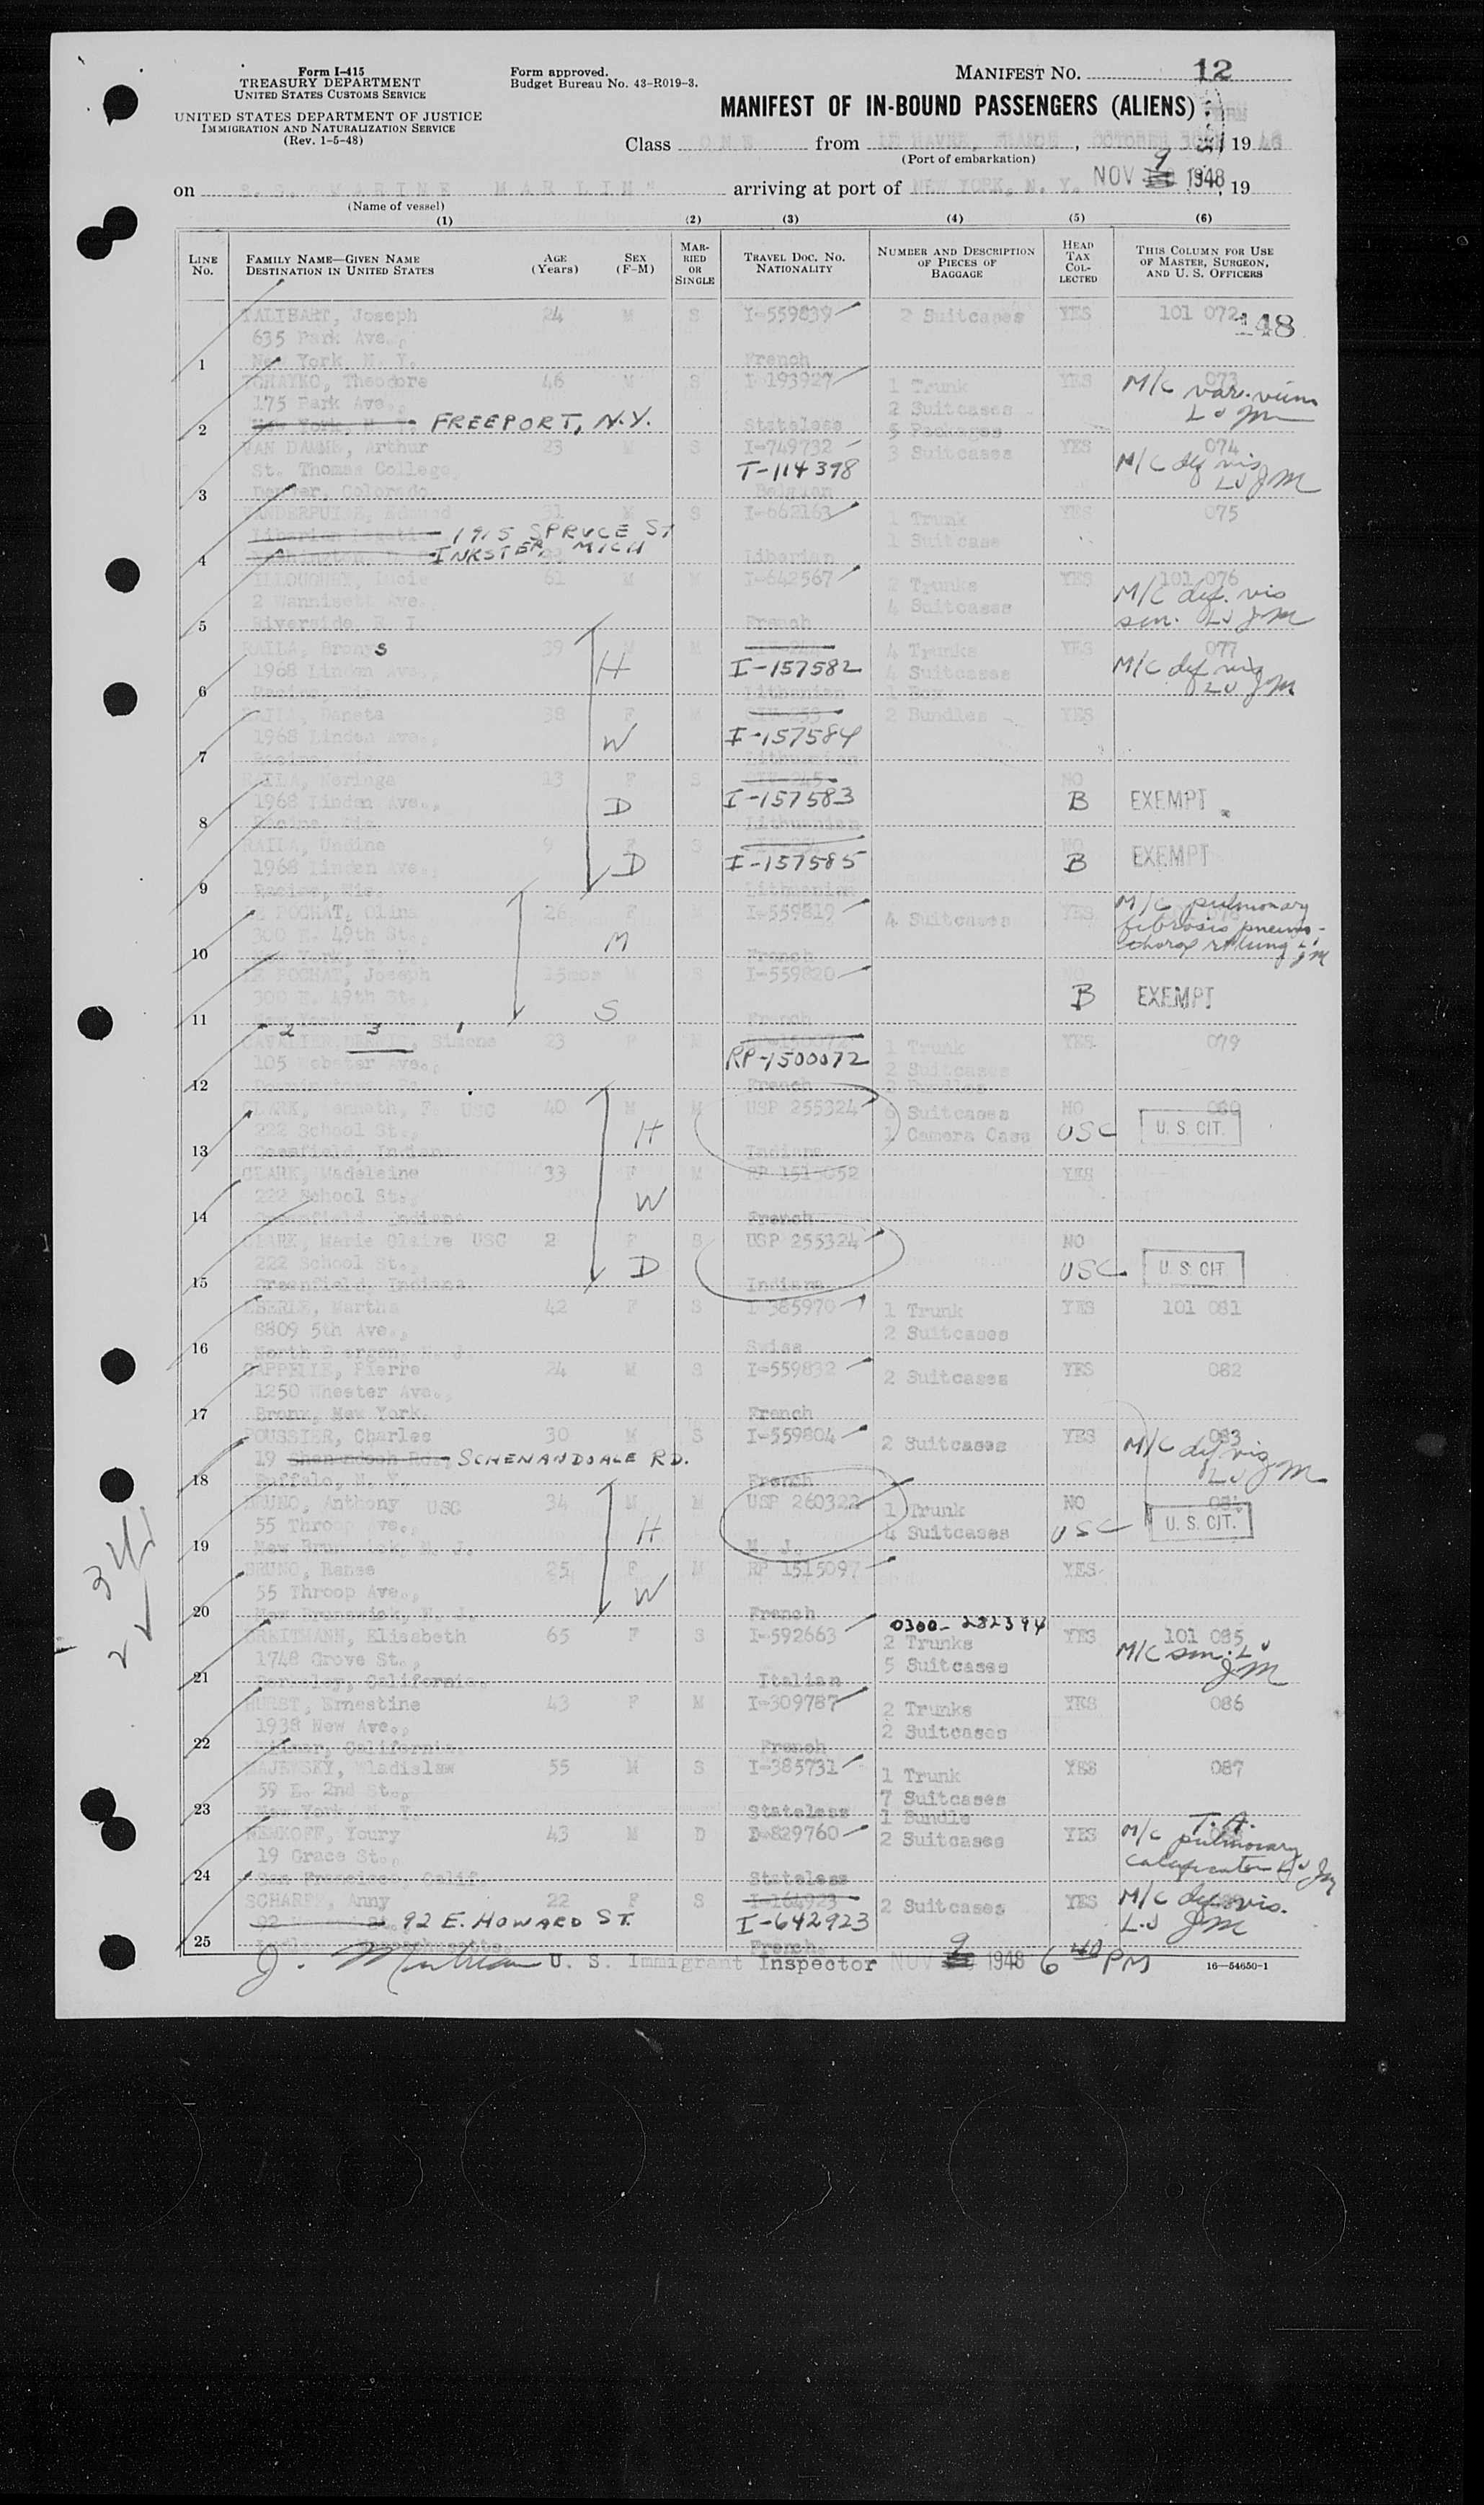 Form I-415
TREASURY DEPARTMENT
UNITED STATES CUSTOMS SERVICE
UNITED STATES DEPARTMENT OF JUSTICE
IMMIGRATION AND NATURALIZATION SERVICE
(Rev. 1-5-48)
Form approved.
Budget Bureau No. 43-R019-3.
MANIFEST NO. 12
MANIFEST OF IN-BOUND PASSENGERS (ALIENS)
Class ONE from LE HAVRE, FRANCE, OCTOBER 19 48
(Port of embarkation)
on S. S. "MARINE MARLIN" arriving at port of NEW YORK, N. Y. NOV 9 1948, 19
(Name of vessel)
(1) (2) (3) (4) (5) (6)
LINE No.
FAMILY NAME—GIVEN NAME
DESTINATION IN UNITED STATES
AGE (Years)
SEX (F-M)
MARRIED OR SINGLE
TRAVEL DOC. NO.
NATIONALITY
NUMBER AND DESCRIPTION OF PIECES OF BAGGAGE
HEAD TAX COLLECTED
THIS COLUMN FOR USE OF MASTER, SURGEON, AND U. S. OFFICERS
TALIBART, Joseph 24 M S I-559839 2 Suitcases YES 101 072
148
635 Park Ave.,
1 New York, N. Y. French
Theodore 46 M S I-193927 1 Trunk YES 073
M/C var. veins
175 Park Ave., 2 Suitcases
2 New York FREEPORT, N.Y. Stateless 5 Packages
VAN DAMME, Arthur 23 M S I-749732 3 Suitcases YES 074
St. Thomas College, T-114398 M/C def vis
LJ JM
3 Denver, Colorado Belgian
VANDERPUIJE, Edmund 31 M S I-662163 1 Trunk YES 075
1915 SPRUCE ST 1 Suitcase
4 INKSTER, MICH Liberian
Lucie 61 M I-642567 2 Trunks YES 101 076
2 Wannisett Ave., 4 Suitcases M/C def. vis
5 Riverside, R. I. French sen. LJ JM
RAILA, Bronys 39 M M 4 Trunks YES 077
1968 Linden Ave., H I-157582 4 Suitcases M/C def vis
6 Racine, Wis. Lithuanian 1 Box LJ JM
RAILA, Daneta 38 F M 2 Bundles YES
1968 Linden Ave., W I-157584
7 Racine, Wis. Lithuanian
RAILA, Neringa 13 F S NO
1968 Linden Ave., D I-157583 B EXEMPT
8 Racine, Wis. Lithuanian
RAILA, Undine 9 F S NO
1968 Linden Ave., D I-157585 B EXEMPT
9 Racine, Wis. Lithuanian
LE POCHAT, Olina 26 F I-559819 4 Suitcases YES M/C pulmonary
300 E. 49th St., M fibrosis pneumo-
10 New York, N. Y. French thorax rt lung LJ
JM
LE POCHAT, Joseph 15mos M S I-559820 NO
300 E. 49th St., B EXEMPT
11 New York S French
2 3 1
Simone 23 F M 1 Trunk YES 079
105 Webster Ave., RP-1500072 2 Suitcases
12 French Bundles
CLARK, Kenneth, F. USC 40 M M USP 255324 6 Suitcases NO 080
222 School St., H 1 Camera Case USC U. S. CIT.
13 Greenfield, Indiana Indiana
CLARK, Madeleine 33 F M RP 1515052 YES
222 School St., W
14 Greenfield, Indiana French
CLARK, Marie Claire USC 2 F S USP 255324 NO
222 School St., D USC U. S. CIT.
15 Greenfield, Indiana Indiana
EBERLE, Martha 42 F S I-385970 1 Trunk YES 101 081
8809 5th Ave., 2 Suitcases
16 North Bergen, N. J. Swiss
CAPPELLE, Pierre 24 M S I-559832 2 Suitcases YES 082
1250 Wheeler Ave.,
17 Bronx, New York French
POUSSIER, Charles 30 M S I-559804 2 Suitcases YES 083
19 Shenandoah Rd. SCHENANDOALE RD. M/C def vis
18 Buffalo, N. Y. French LJ JM
BRUNO, Anthony USC 34 M M USP 260322 1 Trunk NO 084
55 Throop Ave., H 4 Suitcases USC U. S. CIT.
19 New Brunswick, N. J. N. J.
BRUNO, Renee 25 F M RP 1515097 YES
55 Throop Ave., W
20 New Brunswick, N. J. French
0300-282394
BREITMANN, Elisabeth 65 F S I-592663 2 Trunks YES 101 085
1748 Grove St., 5 Suitcases M/C sen. LJ
JM
21 Berkeley, California Italian
HURST, Ernestine 43 F M I-309787 2 Trunks YES 086
1938 New Ave., 2 Suitcases
22 California French
MAJEWSKY, Wladislaw 55 M S I-385731 1 Trunk YES 087
59 E. 2nd St., 7 Suitcases
23 New York, N. Y. Stateless 1 Bundle
T.A.
NEMKOFF, Youry 43 M D I-829760 2 Suitcases YES M/C pulmonary
19 Grace St., LJ JM
24 San Francisco, Calif. Stateless
SCHARFF, Anny 22 F S I-164923 2 Suitcases YES M/C def. vis.
92 E. HOWARD ST. I-642923 LJ JM
25 French
U. S. Immigrant Inspector NOV 9 1948 6 40 PM
16—54650-1